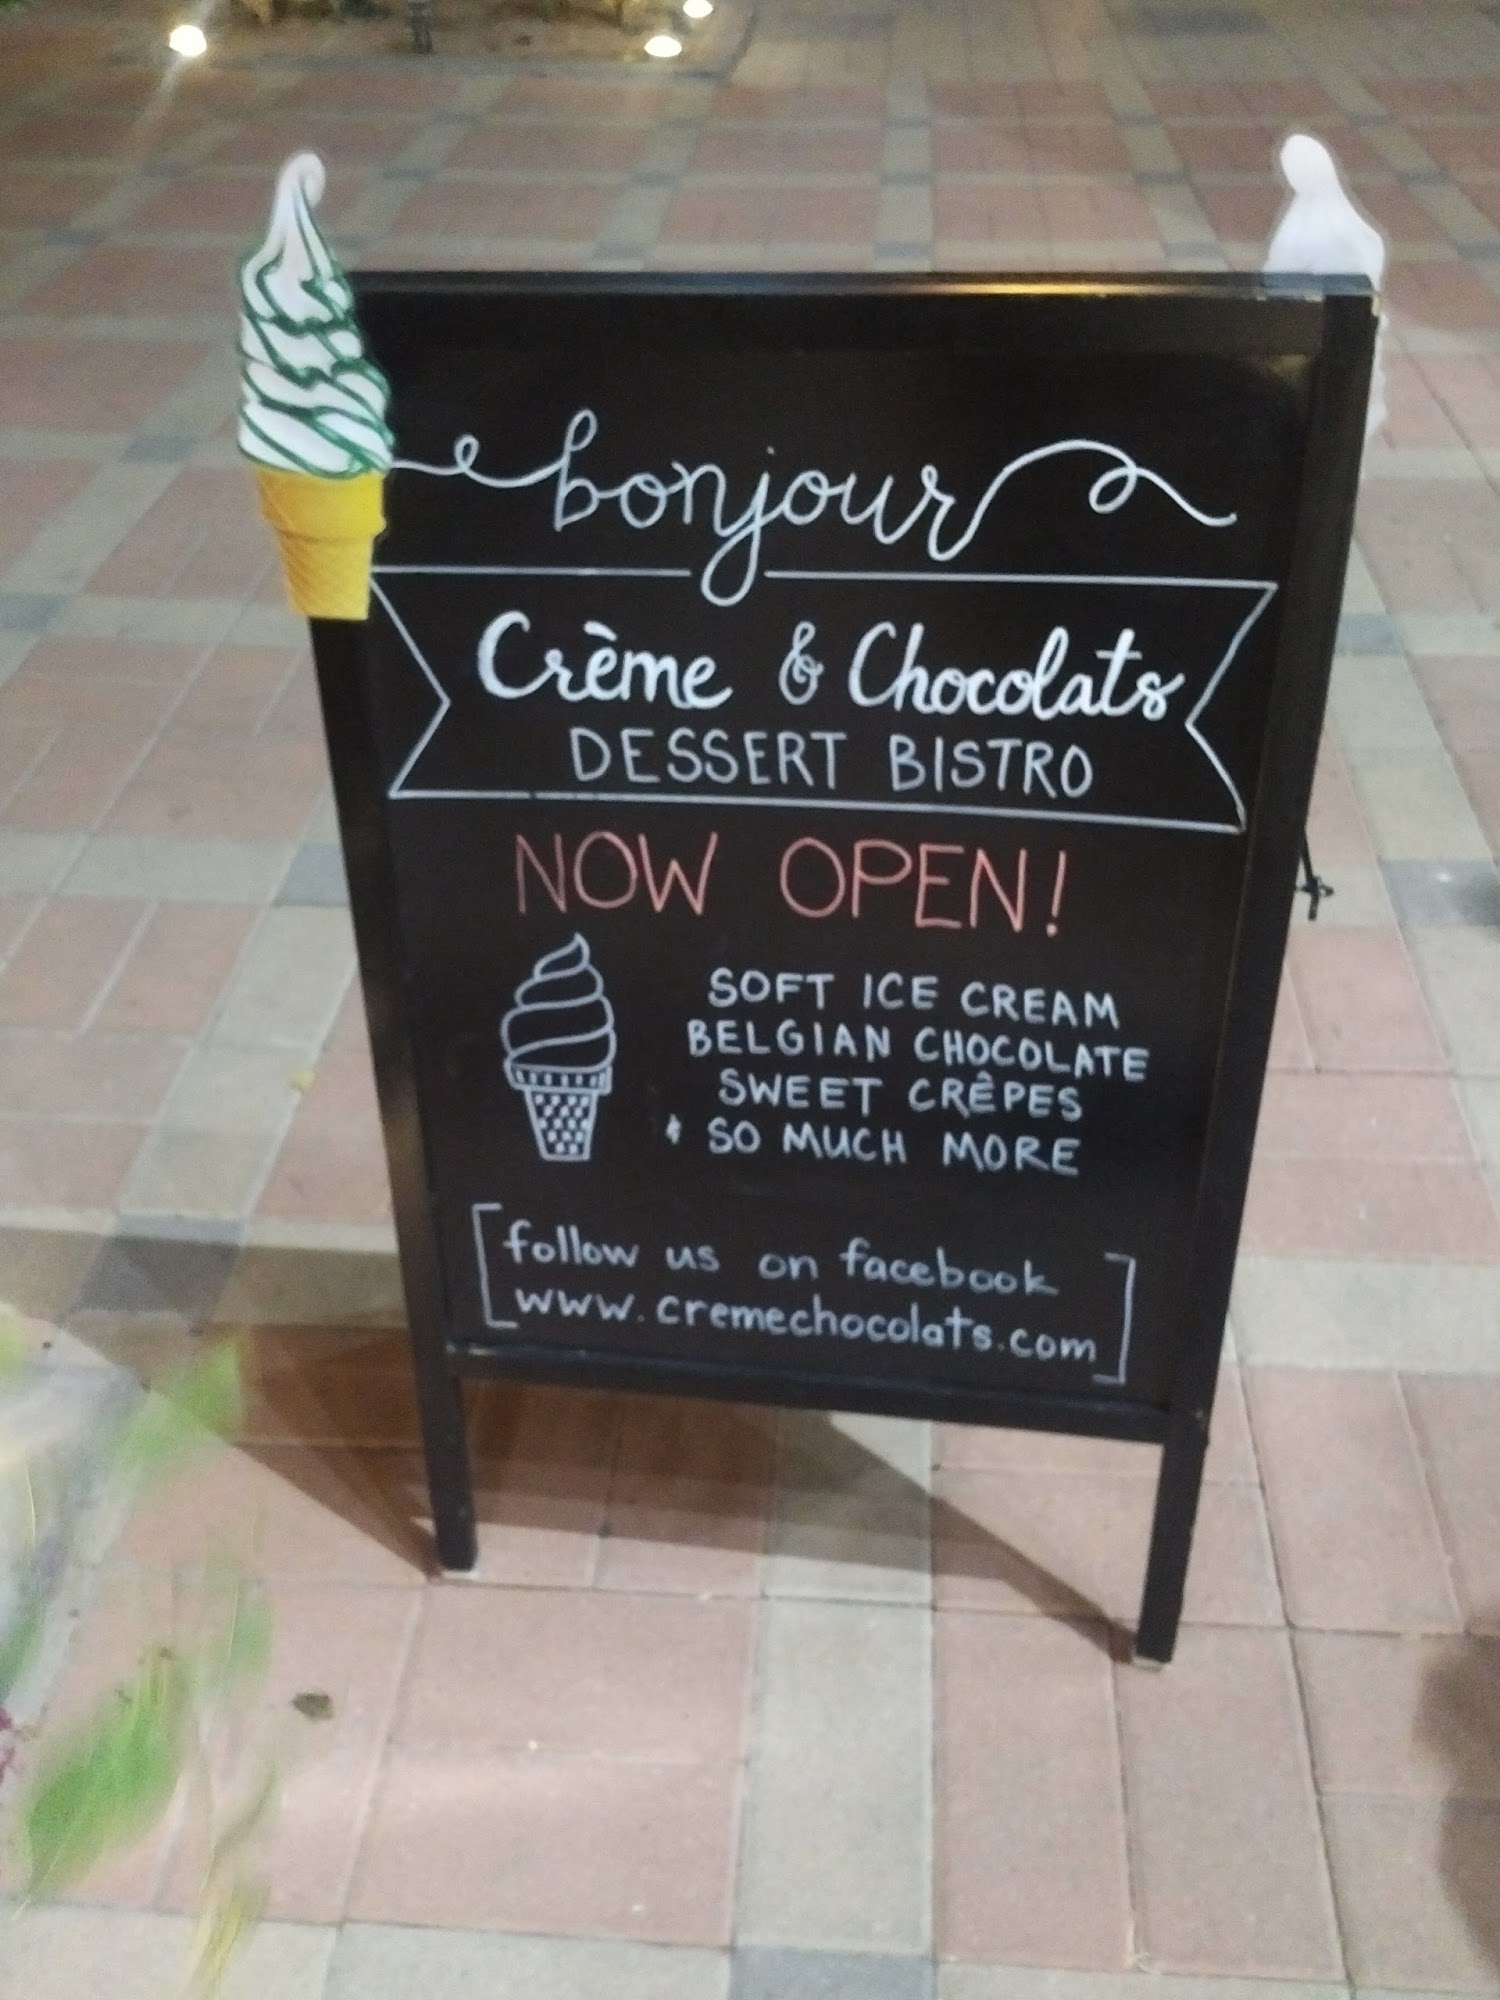 bonjour
Crème & Chocolats
DESSERT BISTRO
NOW OPEN!
SOFT ICE CREAM
BELGIAN CHOCOLATE
SWEET CRÊPES
& SO MUCH MORE
follow us on facebook
www.cremechocolats.com